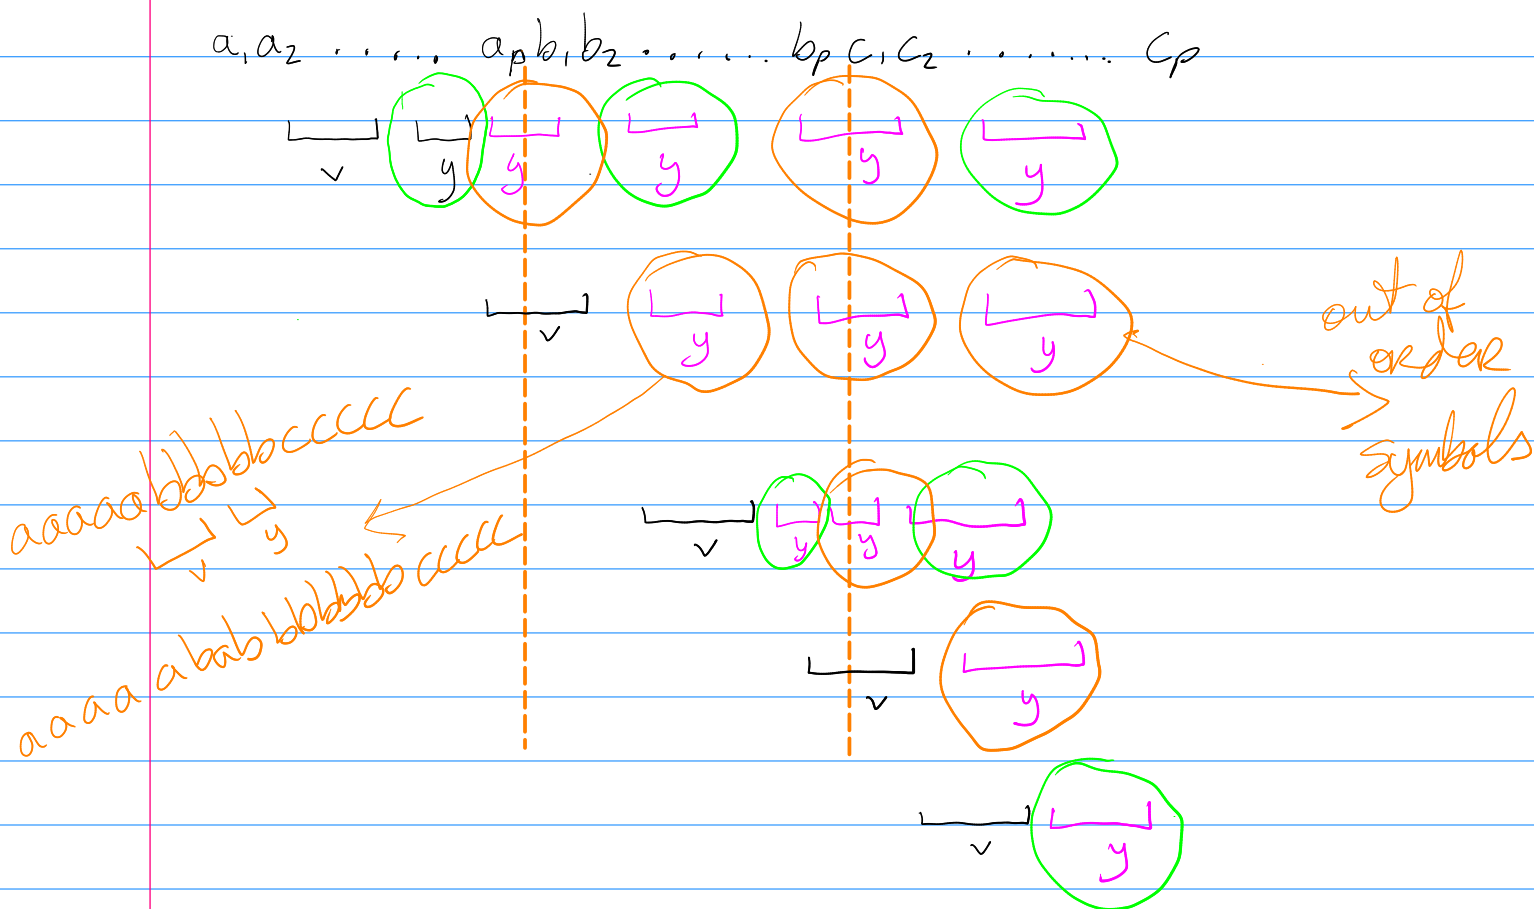 a₁a₂ ...... aₚb₁b₂ ....... bₚc₁c₂ ........ cₚ
v y y y y y
v y y y
out of
order
symbols
aaaaabbbbbbccccc
v y
v y y y
aaaaababbbbbbbccccc
v y
v y